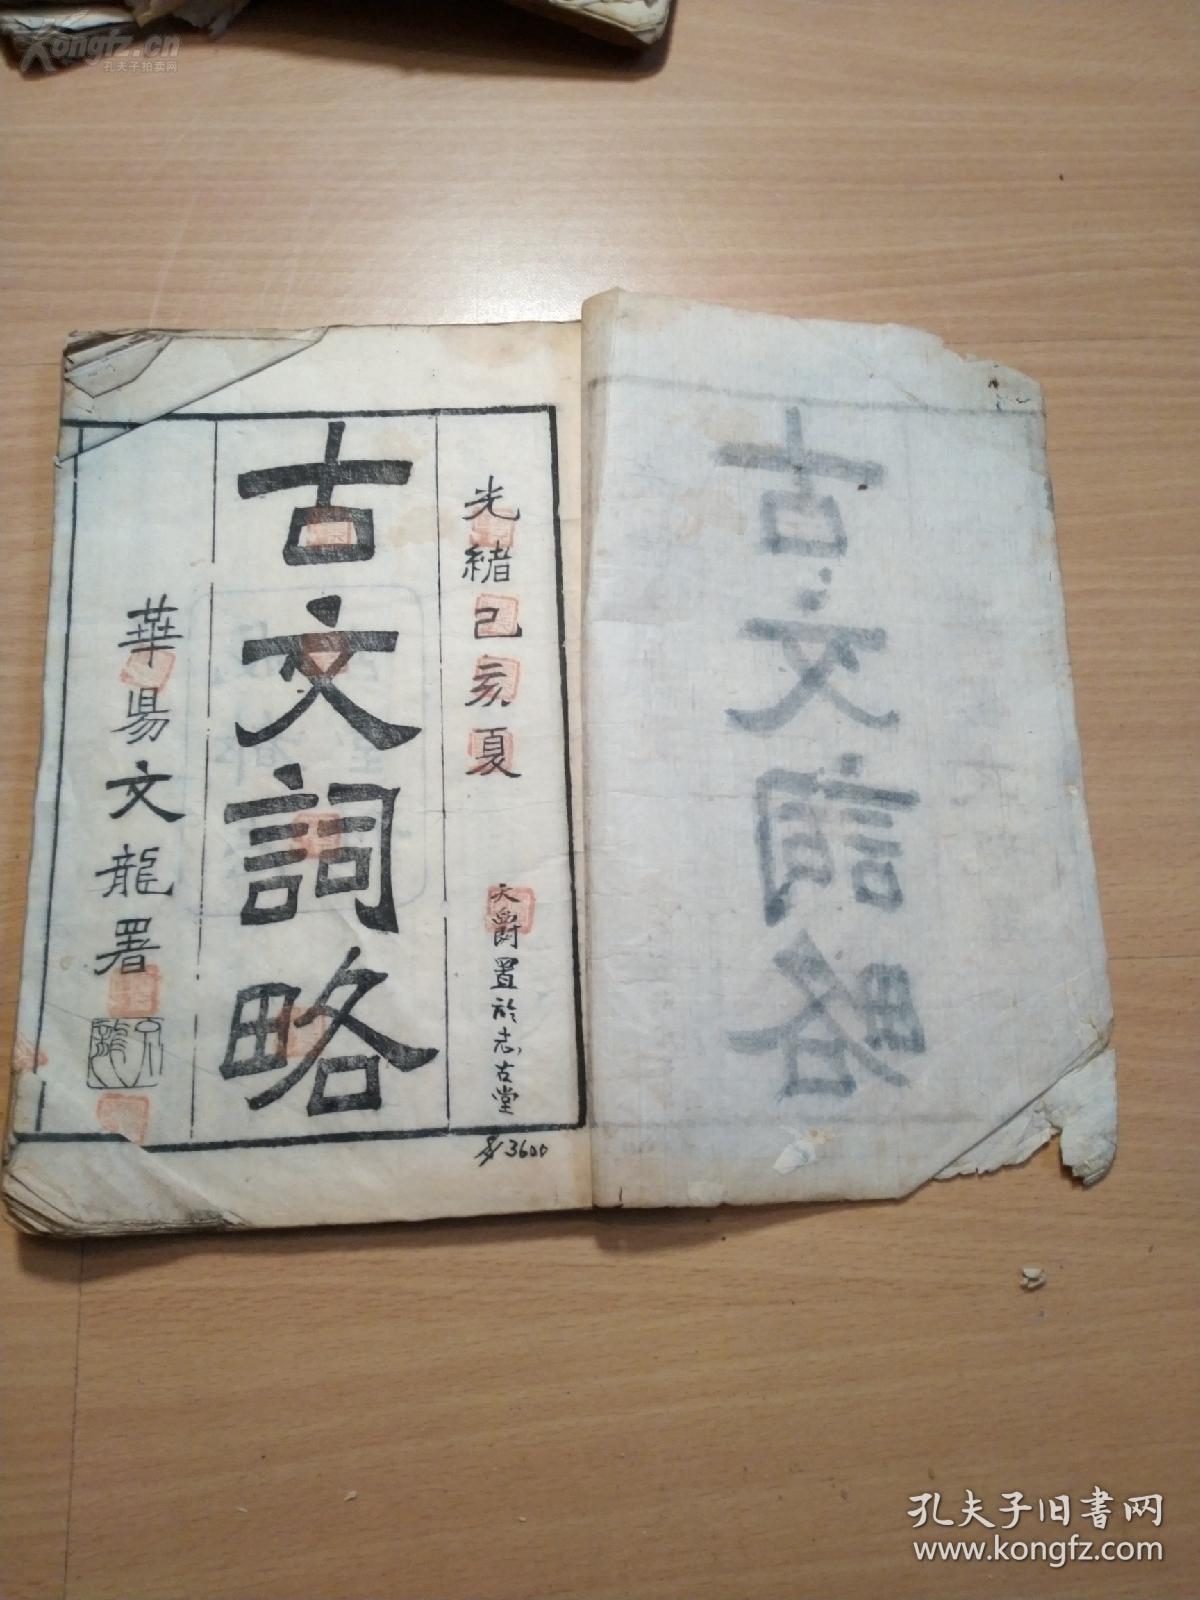 Kongfz.cn
孔夫子拍卖网
光緒己亥夏
天爵置於志古堂
古文詞略
華昜文龍署
3600
孔夫子旧书网
www.kongfz.com